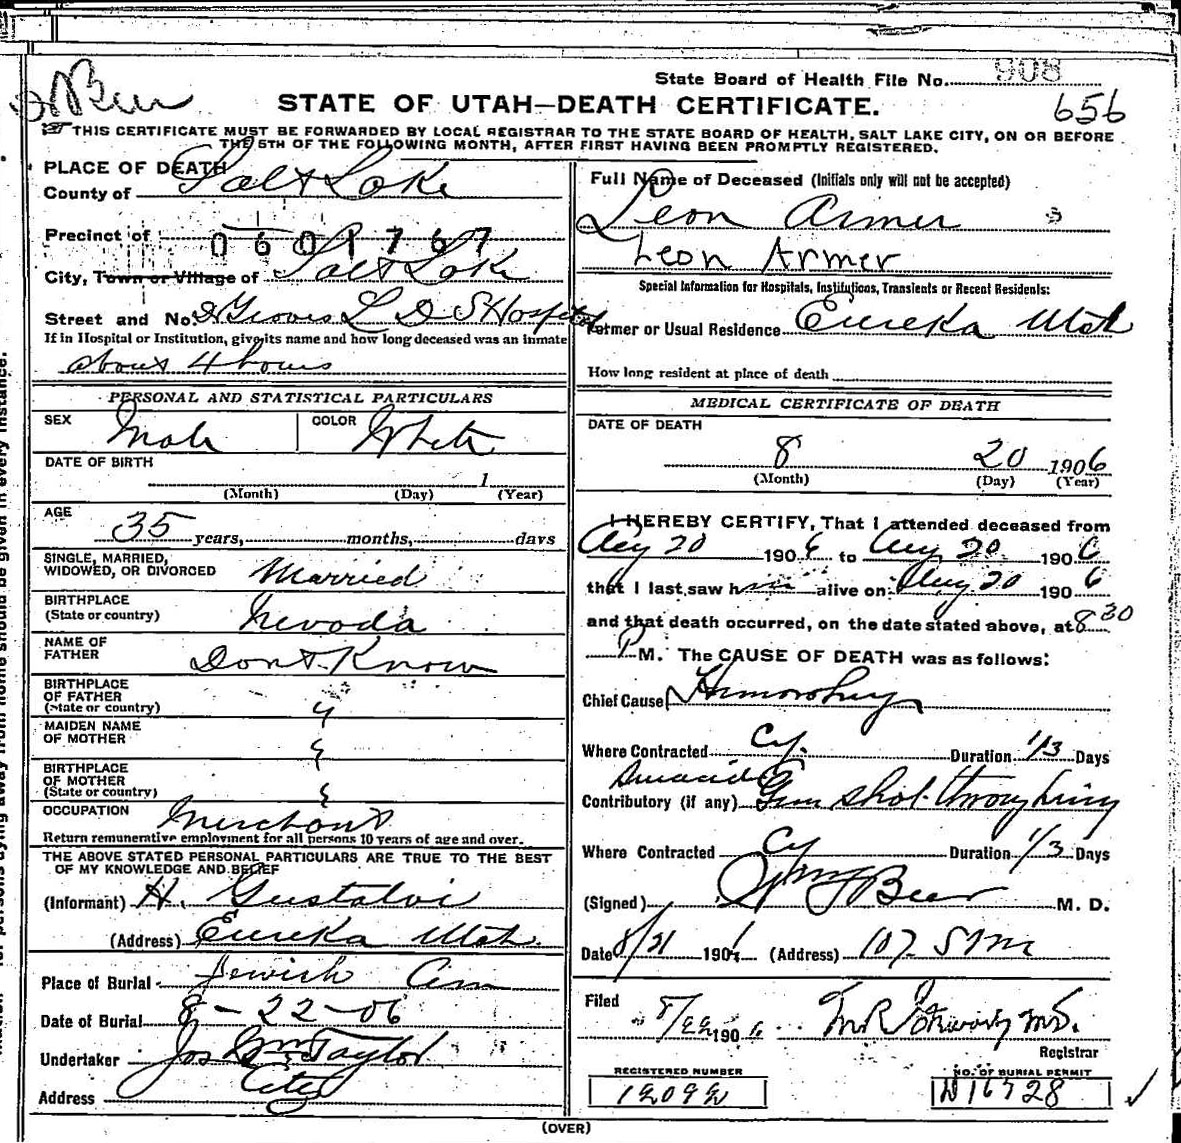 State Board of Health File No. 908
Beer
STATE OF UTAH—DEATH CERTIFICATE.
656
THIS CERTIFICATE MUST BE FORWARDED BY LOCAL REGISTRAR TO THE STATE BOARD OF HEALTH, SALT LAKE CITY, ON OR BEFORE
THE 5TH OF THE FOLLOWING MONTH, AFTER FIRST HAVING BEEN PROMPTLY REGISTERED.
PLACE OF DEATH
County of Salt Lake
Precinct of 0601767
City, Town or Village of Salt Lake
Street and No. Groves L D S Hospital
If in Hospital or Institution, give its name and how long deceased was an inmate
about 4 hours
PERSONAL AND STATISTICAL PARTICULARS
SEX Male COLOR White
DATE OF BIRTH
1
(Month) (Day) (Year)
AGE
35 years, months, days
SINGLE, MARRIED,
WIDOWED, OR DIVORCED Married
BIRTHPLACE
(State or country) Nevada
NAME OF
FATHER Dont Know
BIRTHPLACE
OF FATHER
(State or country) "
MAIDEN NAME
OF MOTHER "
BIRTHPLACE
OF MOTHER
(State or country) "
OCCUPATION Merchant
Return remunerative employment for all persons 10 years of age and over.
THE ABOVE STATED PERSONAL PARTICULARS ARE TRUE TO THE BEST
OF MY KNOWLEDGE AND BELIEF
(Informant) H. Gustaldi
(Address) Eureka Utah.
Place of Burial Jewish Cem
Date of Burial 8-22-06
Undertaker Jos Wm Taylor
Address City
Full Name of Deceased (Initials only will not be accepted)
Leon Armer
Leon Armer
Special Information for Hospitals, Institutions, Transients or Recent Residents:
Former or Usual Residence Eureka Utah
How long resident at place of death
MEDICAL CERTIFICATE OF DEATH
DATE OF DEATH
8 20 1906
(Month) (Day) (Year)
I HEREBY CERTIFY, That I attended deceased from
Aug 20 1906 to Aug 20 1906
that I last saw him alive on Aug 20 1906
and that death occurred, on the date stated above, at 8 30
P M. The CAUSE OF DEATH was as follows:
Chief Cause Hemorrhage
Where Contracted Cy. Duration 1/3 Days
Suicide
Contributory (if any) Gun shot through lung
Where Contracted Cy Duration 1/3 Days
(Signed) Beer M. D.
Date 8/21 1906 (Address) 107 S Main
Filed
8/22 1906 M.D.
Registrar
REGISTERED NUMBER
12092
NO. OF BURIAL PERMIT
D16728
(OVER)